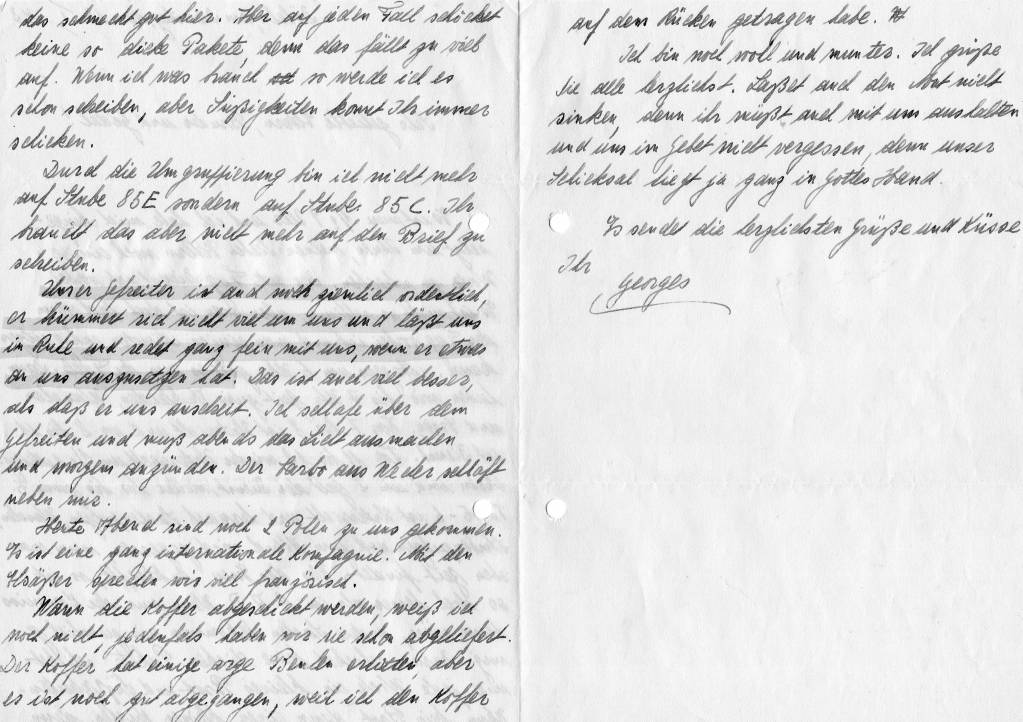 das schmeckt gut hier. Aber auf jeden Fall schicket
keine so dicke Pakete, denn das fällt zu viel
auf. Wenn ich was brauch so werde ich es
schon schreiben, aber Süßigkeiten könnt Ihr immer
schicken.
Durch die Umgruppierung bin ich nicht mehr
auf Stube 85E sondern auf Stube 85C. Ihr
braucht das aber nicht mehr auf den Brief zu
schreiben.
Unser Gefreiter ist auch noch ziemlich ordentlich,
er kümmert sich nicht viel um uns und läßt uns
in Ruhe und redet ganz fein mit uns, wenn er etwas
an uns auszusetzen hat. Das ist auch viel besser,
als daß er uns anscheit. Ich schlafe über dem
Gefreiten und muß abends das Licht ausmachen
und morgens anzünden. Der Barbo aus Wecker schläft
neben mir.
Heute Abend sind noch 2 Polen zu uns gekommen.
Es ist eine ganz internationale Kompagnie. Mit den
Elsäßer sprechen wir viel französisch.
Wann die Koffer abgeschickt werden, weiß ich
noch nicht, jedenfals haben wir sie schon abgeliefert.
Der Koffer hat einige arge Beulen erlitten, aber
es ist noch gut abgegangen, weil ich den Koffer
auf dem Rücken getragen habe.
Ich bin noch woll und munter. Ich grüße
Sie alle herzlichst. Laßet auch den Mut nicht
sinken, denn ihr müßt auch mit uns aushalten
und uns im Gebet nicht vergessen, denn unser
Schicksal liegt ja ganz in Gottes Hand.
Es sendet die herzlichsten Grüße und Küsse
Ihr
Georges